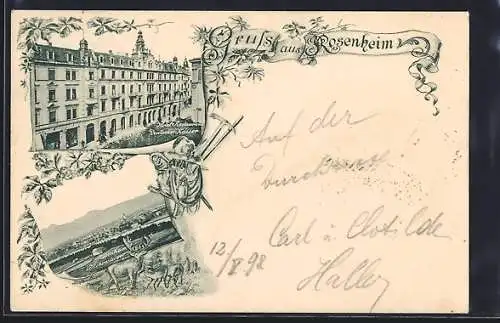 Gruss aus Rosenheim
Deutscher Kaiser
Auf der
Durchreise
Carl u Clotilde
Haller
12/V 98